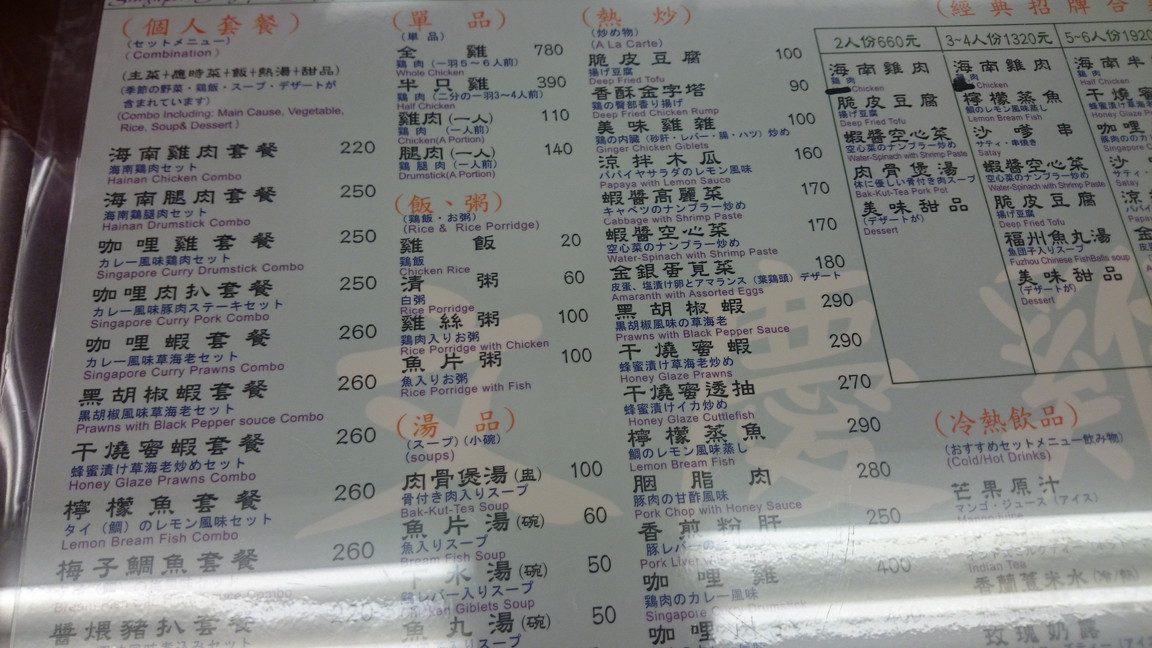 (個人套餐)
(セットメニュー)
(Combination)
(主菜+應時菜+飯+熱湯+甜品)
(季節の野菜・鶏飯・スープ・デザートが
含まれています)
(Combo Including: Main Cause, Vegetable,
Rice, Soup& Dessert)
海南雞肉套餐 220
海南鶏肉セット
Hainan Chicken Combo
海南腿肉套餐 250
海南鶏腿肉セット
Hainan Drumstick Combo
咖哩雞套餐 250
カレー風味鶏肉セット
Singapore Curry Drumstick Combo
咖哩肉扒套餐 250
カレー風味豚肉ステーキセット
Singapore Curry Pork Combo
咖哩蝦套餐 260
カレー風味草海老セット
Singapore Curry Prawns Combo
黑胡椒蝦套餐 260
黒胡椒風味草海老セット
Prawns with Black Pepper souce Combo
干燒蜜蝦套餐 260
蜂蜜漬け草海老炒めセット
Honey Glaze Prawns Combo
檸檬魚套餐 260
タイ(鯛)のレモン風味セット
Lemon Bream Fish Combo
梅子鯛魚套餐 260
醬煨豬扒套餐
(單品)
(単品)
全雞 780
鶏肉(一羽5~6人前)
Whole Chicken
半只雞 390
鶏肉(二分の一羽3~4人前)
Half Chicken
雞肉(一人) 110
鶏肉(一人前)
Chicken(A Portion)
腿肉(一人) 140
鶏腿肉(一人前)
Drumstick(A Portion)
(飯、粥)
(鶏飯・お粥)
(Rice & Rice Porridge)
雞飯 20
鶏飯
Chicken Rice
清粥 60
白粥
Rice Porridge
雞絲粥 100
鶏肉入りお粥
Rice Porridge with Chicken
魚片粥 100
魚入りお粥
Rice Porridge with Fish
(湯品)
(スープ)(小碗)
(soups)
肉骨煲湯(盅) 100
骨付き肉入りスープ
Bak-Kut-Tea Soup
魚片湯(碗) 60
魚入りスープ
Bream Fish Soup
下水湯(碗) 50
鶏レバー入りスープ
Chicken Giblets Soup
魚丸湯(碗) 50
(熱炒)
(炒め物)
(A La Carte)
脆皮豆腐 100
揚げ豆腐
Deep Fried Tofu
香酥金字塔 90
鶏の臀部香り揚げ
Deep Fried Chicken Rump
美味雞雜 100
鶏の内臓(砂肝・レバー・腸・ハツ)炒め
Ginger Chicken Giblets
涼拌木瓜 160
パパイヤサラダのレモン風味
Papaya with Lemon Sauce
蝦醬高麗菜 170
キャベツのナンプラー炒め
Cabbage with Shrimp Paste
蝦醬空心菜 170
空心菜のナンプラー炒め
Water-Spinach with Shrimp Paste
金銀蛋莧菜 180
皮蛋、塩漬け卵とアマランス(葉鶏頭)デザート
Amaranth with Assorted Eggs
黑胡椒蝦 290
黒胡椒風味の草海老
Prawns with Black Pepper Sauce
干燒蜜蝦 290
蜂蜜漬け草海老炒め
Honey Glaze Prawns
干燒蜜透抽 270
蜂蜜漬けイカ炒め
Honey Glaze Cuttlefish
檸檬蒸魚 290
鯛のレモン風味蒸し
Lemon Bream Fish
胭脂肉 280
豚肉の甘酢風味
Pork Chop with Honey Sauce
香煎粉肝 250
豚レバーの
Pork Liver
咖哩雞 400
鶏肉のカレー風味
Singapore Curry Drumstick
咖哩
(經典招牌合
2人份660元
海南雞肉
鶏肉
Chicken
脆皮豆腐
揚げ豆腐
Deep Fried Tofu
蝦醬空心菜
空心菜のナンプラー炒め
Water-Spinach with Shrimp Paste
肉骨煲湯
体に優しい骨付き肉スープ
Bak-Kut-Tea Pork Pot
美味甜品
(デザートが)
Dessert
3~4人份1320元
海南雞肉
肉
Chicken
檸檬蒸魚
鯛のレモン風味蒸し
Lemon Bream Fish
沙嗲串
サティ・串焼き
Satay
蝦醬空心菜
空心菜のナンプラー炒め
Water-Spinach with Shrimp Paste
脆皮豆腐
揚げ豆腐
Deep Fried Tofu
福州魚丸湯
魚団子入りスープ
Fuzhou Chinese FishBalls soup
美味甜品
(デザートが)
Dessert
5~6人份1920
海南半
鶏肉
Half Chicken
干燒蜜
Honey Glaze
咖哩
Singapore C
沙
サティ・
Satay
涼
Papaya
(冷熱飲品)
(おすすめセットメニュー飲み物)
(Cold/Hot Drinks)
芒果原汁
マンゴ・ジュース(アイス)
Indian Tea
香蘭薏米水
玫瑰奶露
文慶雞